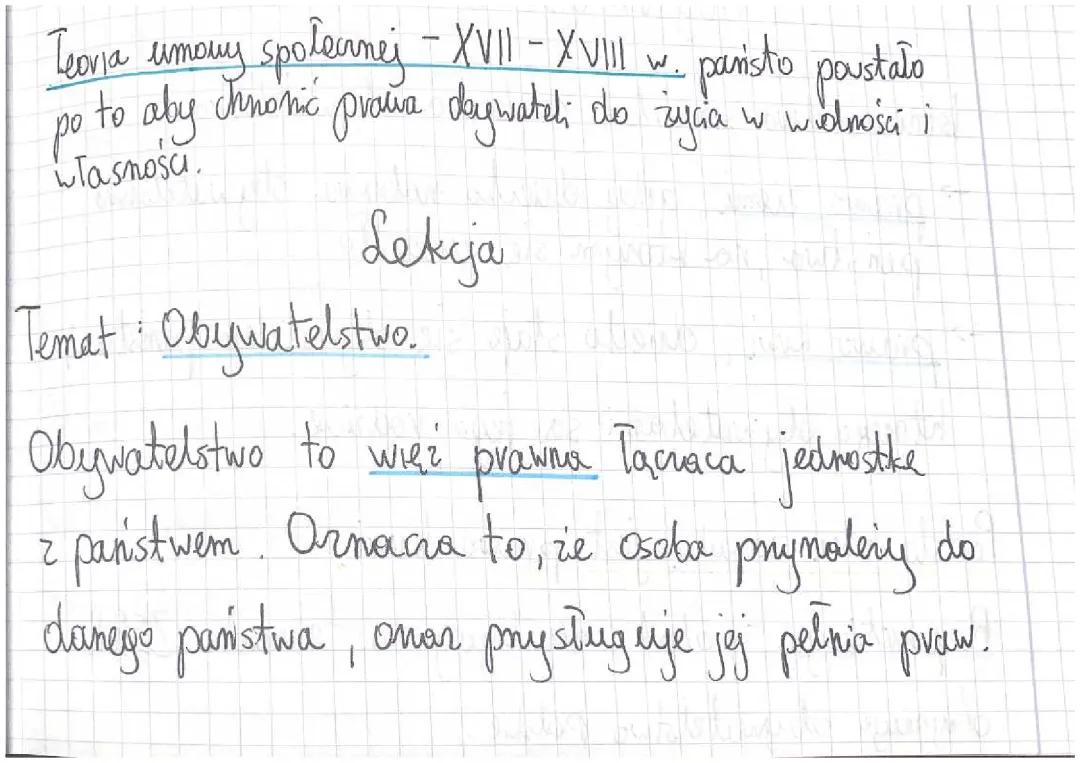 Teoria umowy społecznej - XVII - XVIII w. państo powstało
po to aby chronić prawa obywateli do życia w wolności i
własności.
Lekcja
Temat: Obywatelstwo.
Obywatelstwo to więź prawna łącząca jednostkę
z państwem. Oznacza to, że osoba przynależy do
danego państwa, oraz przysługuje jej pełnia praw.